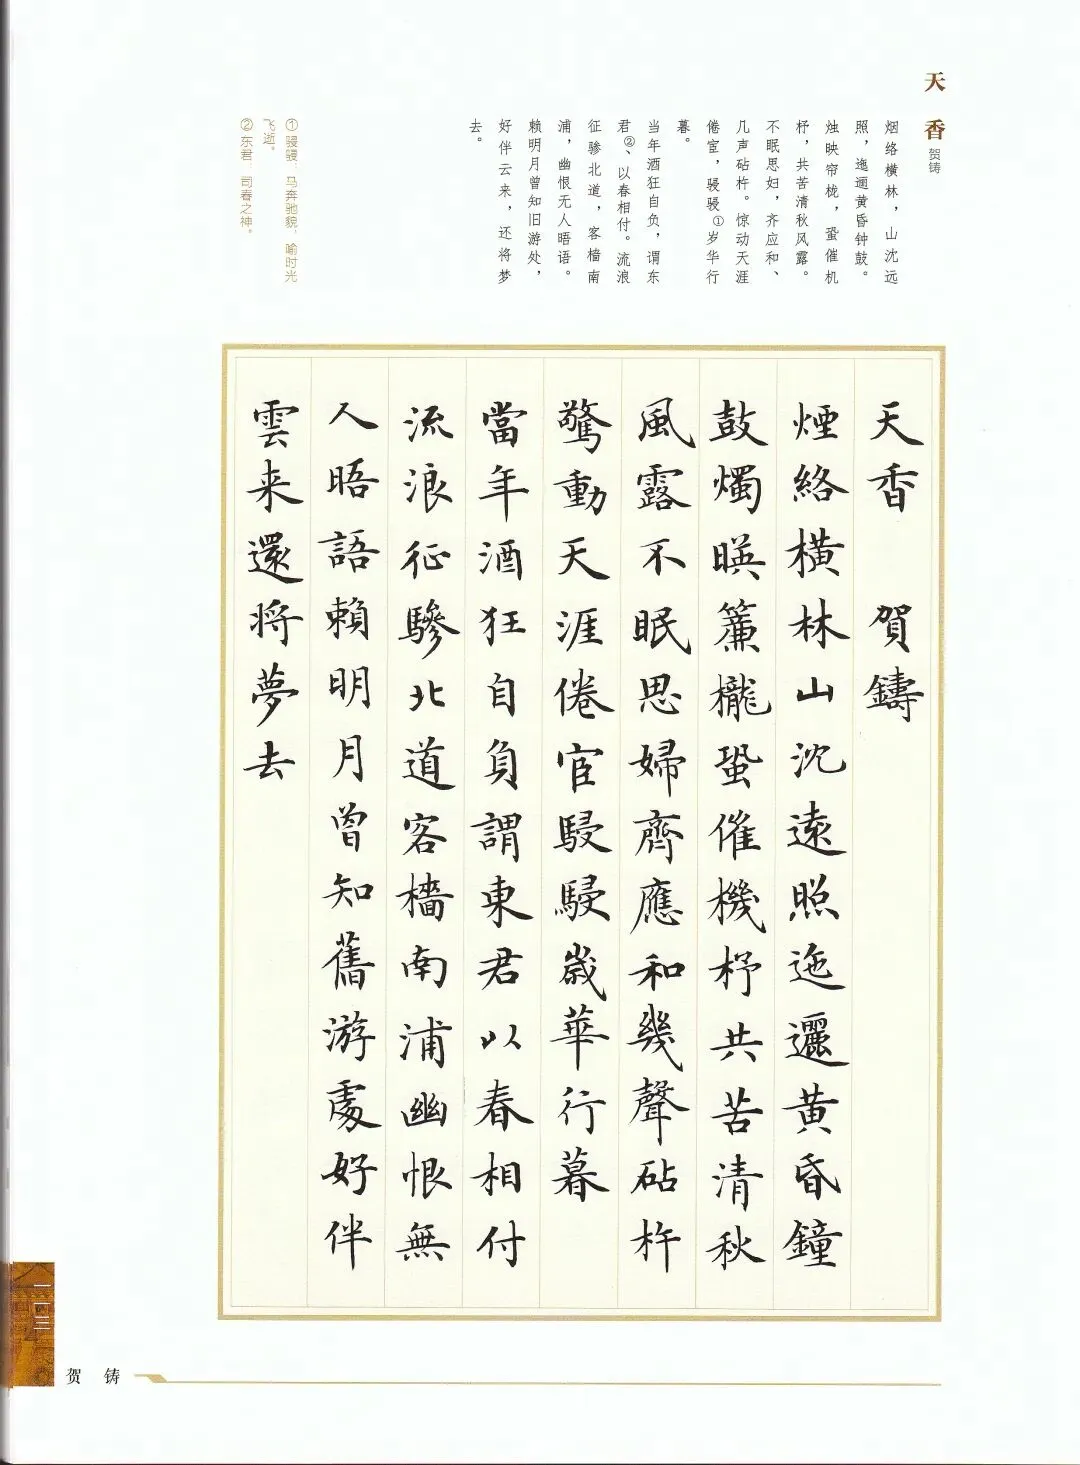 天香
贺铸
烟络横林，山沈远
照，迤逦黄昏钟鼓。
烛映帘栊，蛩催机
杼，共苦清秋风露。
不眠思妇，齐应和、
几声砧杵。惊动天涯
倦宦，骎骎①岁华行
暮。
当年酒狂自负，谓东
君②、以春相付。流浪
征骖北道，客樯南
浦，幽恨无人晤语。
赖明月曾知旧游处，
好伴云来，还将梦
去。
① 骎骎：马奔驰貌，喻时光
飞逝。
② 东君：司春之神。
天香 賀鑄
煙絡橫林山沈遠照迤邐黃昏鐘
鼓燭暎簾櫳蛩催機杼共苦清秋
風露不眠思婦齊應和幾聲砧杵
驚動天涯倦宦駸駸歲華行暮
當年酒狂自負謂東君以春相付
流浪征驂北道客檣南浦幽恨無
人晤語賴明月曾知舊游處好伴
雲来還將夢去
一一三
贺 铸